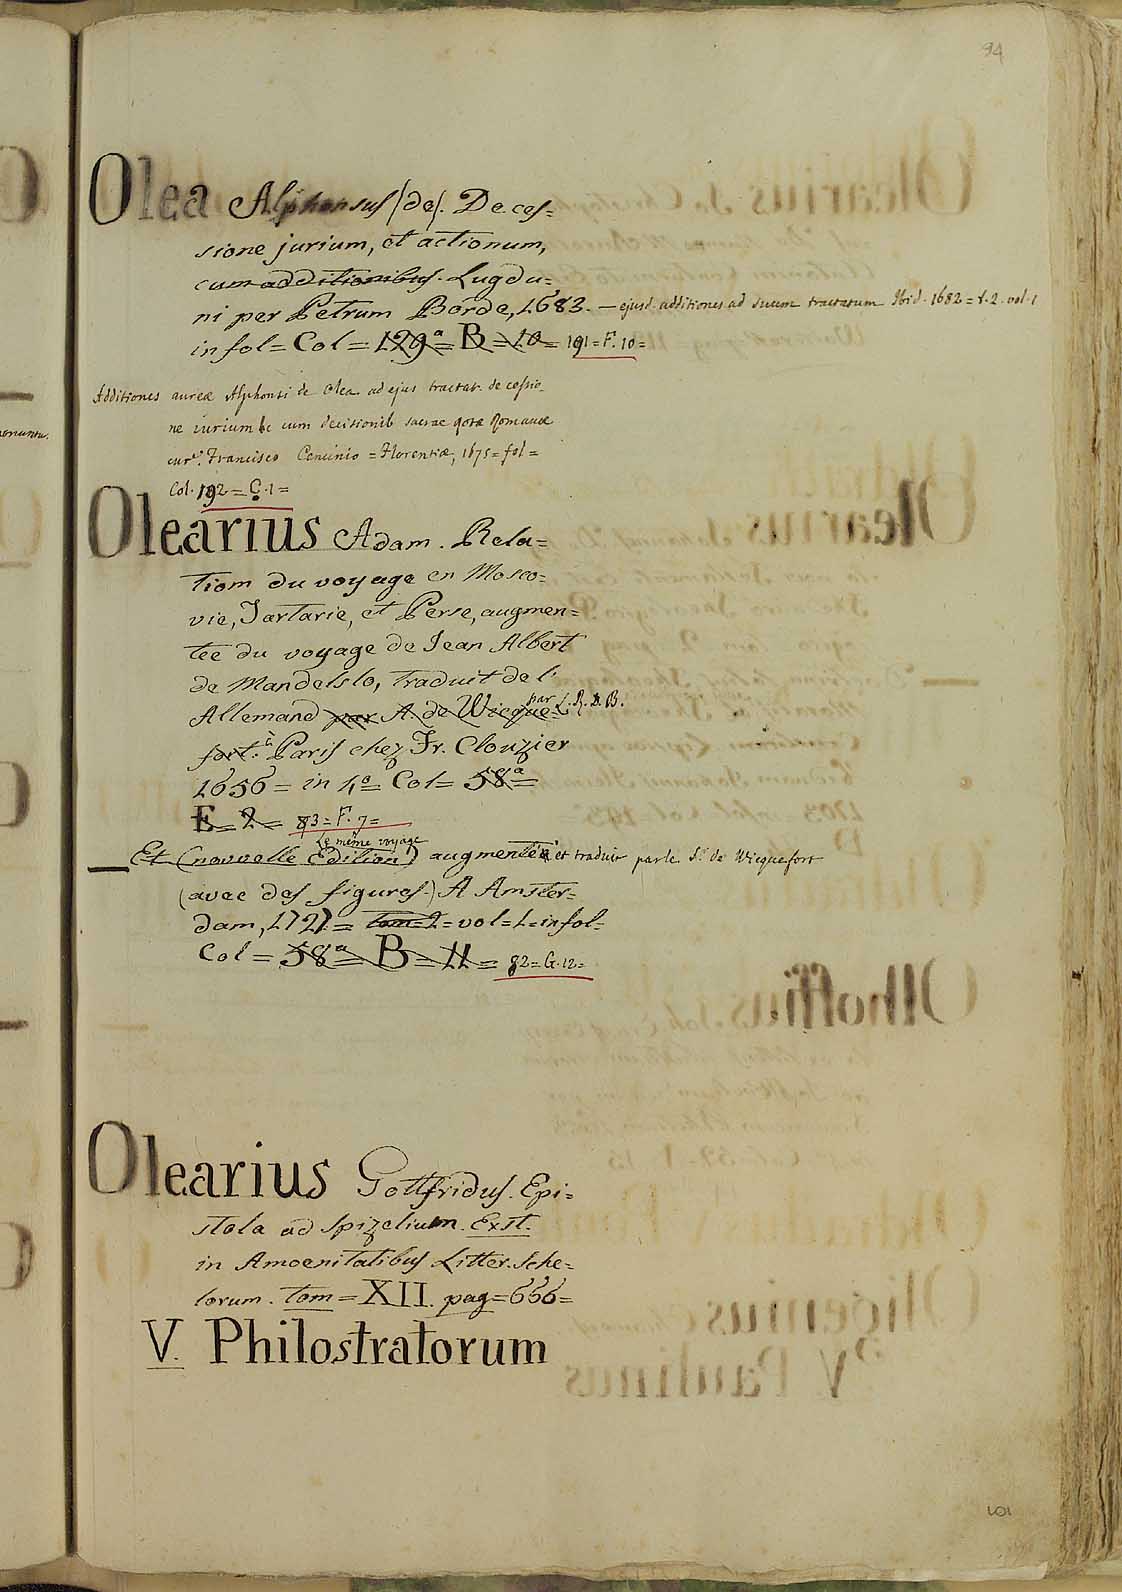 94
Olea Alphonsus (de). De ces=
sione jurium, et actionum,
cum additionibus. Lugdu=
ni per Petrum Borde, 1683. — ejusd. additiones ad suum tractatum Ibid. 1682 = t. 2. vol. 1
in fol = Col = 129ª = B = 10 = 191 = F. 10 =
Additiones aureæ Alphonsi de Olea ad ejus tractat. de cessio
ne iurium &c cum decisionib sacrae rotæ Romanæ
Francisco Cenninio = Florentiæ, 1675 = fol =
Col. 192 = C. 1 =
Olearius Adam. Rela=
tiom du voyage en Mosco=
vie, Tartarie, et Perse, augmen=
tée du voyage de Jean Albert
de Mandelslo, traduit de l'
par L. R. D. B.
Allemand par A. de Wicque=
fort. à Paris chez Fr. Clouzier
1656 = in 4º = Col = 58ª =
E = 2 = 83 = F. 7 =
Le même voyage
Et (nouvelle Edition) augmentée et traduit par le Sr. de Wicquefort
(avec des figures.) A Amster=
dam, 1727 = tom = 2 = vol = 1 = in fol =
Col = 58ª = B = 11 = 82 = G. 12 =
Olearius Gottfridus. Epi=
stola ad Spizelium. Exst.
in Amoenitatibus Litter. Sche=
lorum. tom = XII. pag = 666 =
V. Philostratorum
101